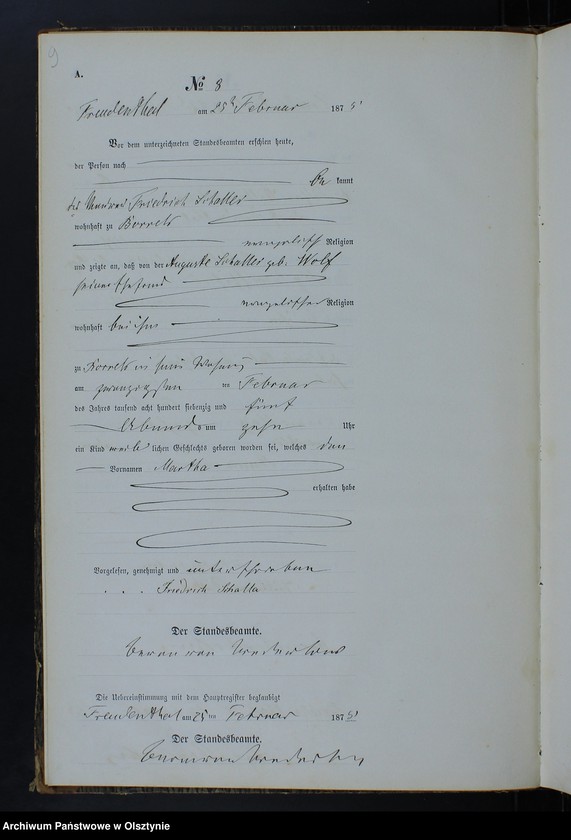 9
A.
No 8
Freudenthal am 25t Februar 1875
Vor dem unterzeichneten Standesbeamten erschien heute,
der Person nach
be kannt
Friedrich Schaller
wohnhaft zuBorreck
evangelisch Religion
und zeigte an, daß von der Auguste Schaller geb. Wolf
seiner Ehefrau
evangelischer Religion
wohnhaft bei ihm
zu Borreck in seiner Wohnung
am zwanzigsten Februar
des Jahres tausend acht hundert siebenzig und fünf
Abends um zehn Uhr
ein Kind weib lichen Geschlechts geboren worden sei, welches den
Vornamen Martha
erhalten habe
Vorgelesen, genehmigt und unterschrieben
Friedrich Schaller
Der Standesbeamte.
Die Uebereinstimmung mit dem Hauptregister beglaubigt
Freudenthal am 25 ten Februar 1875
Der Standesbeamte.
Archiwum Państwowe w Olsztynie